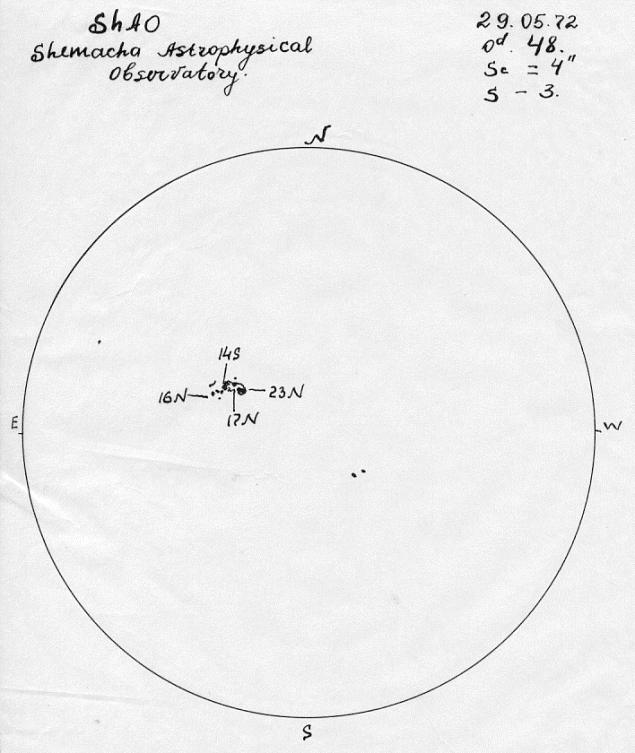 ShAO
Shemacha Astrophysical
Observatory.
29.05.72
0d. 48.
Sc = 4"
S - 3.
N
14S
16N
23N
17N
E
W
S